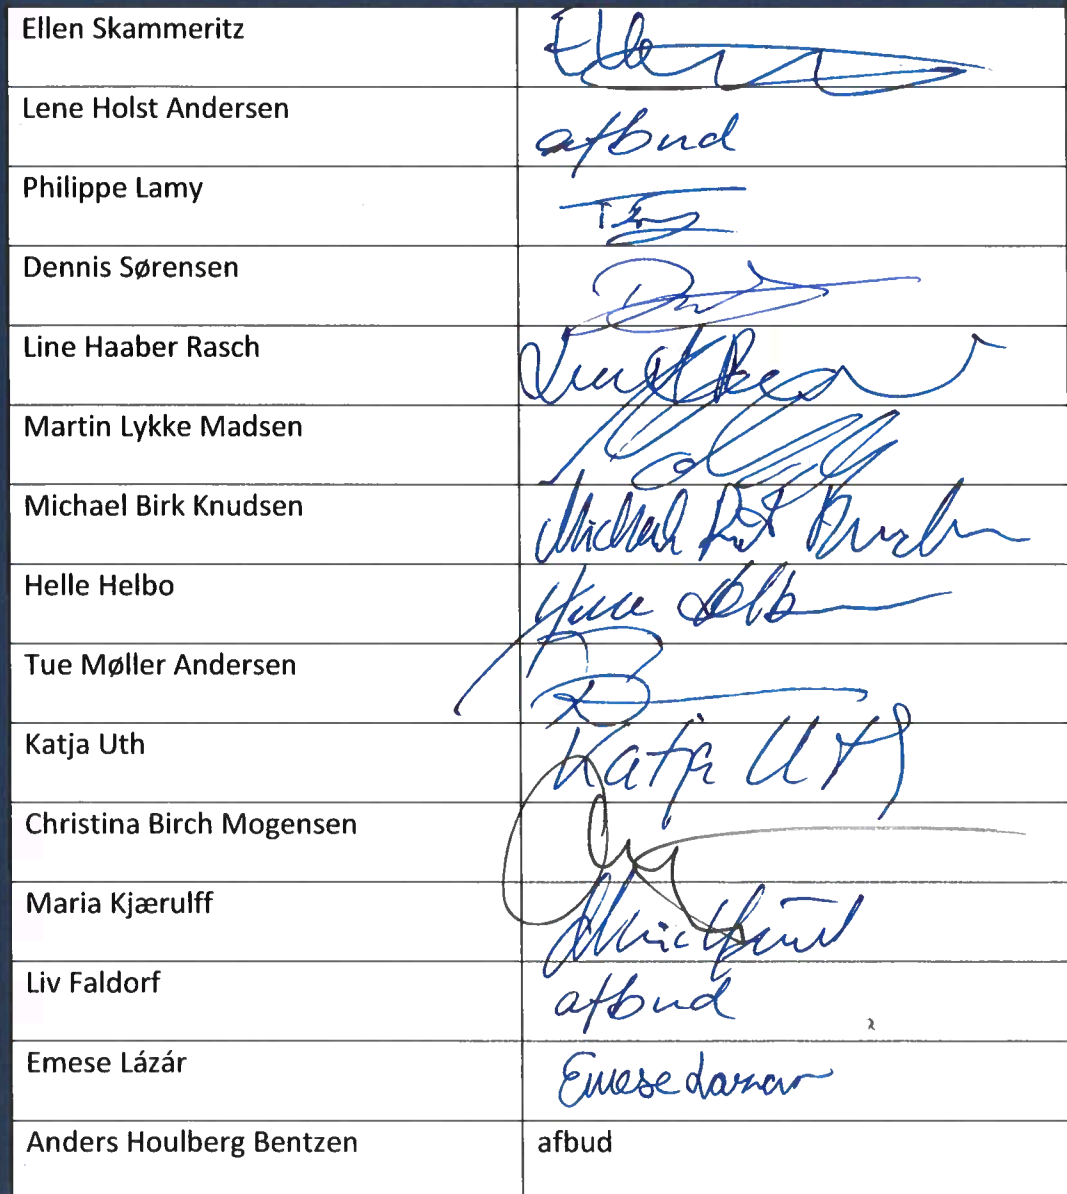 Ellen Skammeritz Ellen
Lene Holst Andersen afbud
Philippe Lamy
Dennis Sørensen
Line Haaber Rasch
Martin Lykke Madsen
Michael Birk Knudsen Michael Birk Knudsen
Helle Helbo Helle Helbo
Tue Møller Andersen
Katja Uth Katja Uth
Christina Birch Mogensen
Maria Kjærulff
Liv Faldorf afbud
Emese Lázár Emese Lazar
Anders Houlberg Bentzen afbud